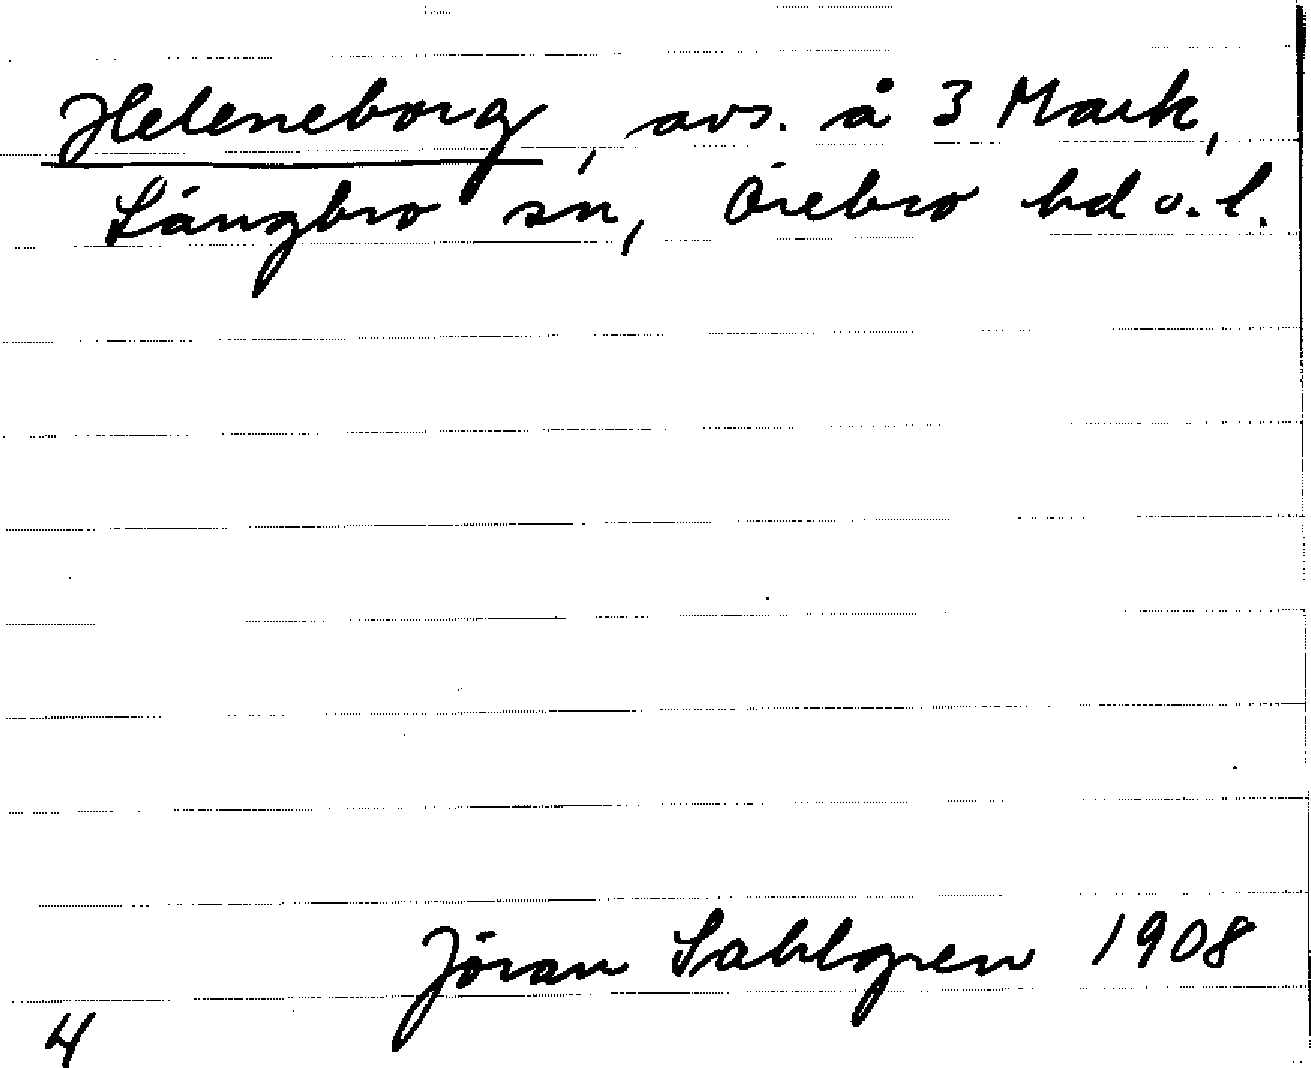 Heleneborg, avs. å 3 Mark,
Längbro sn, Örebro hd o. l.
Jöran Sahlgren 1908
4